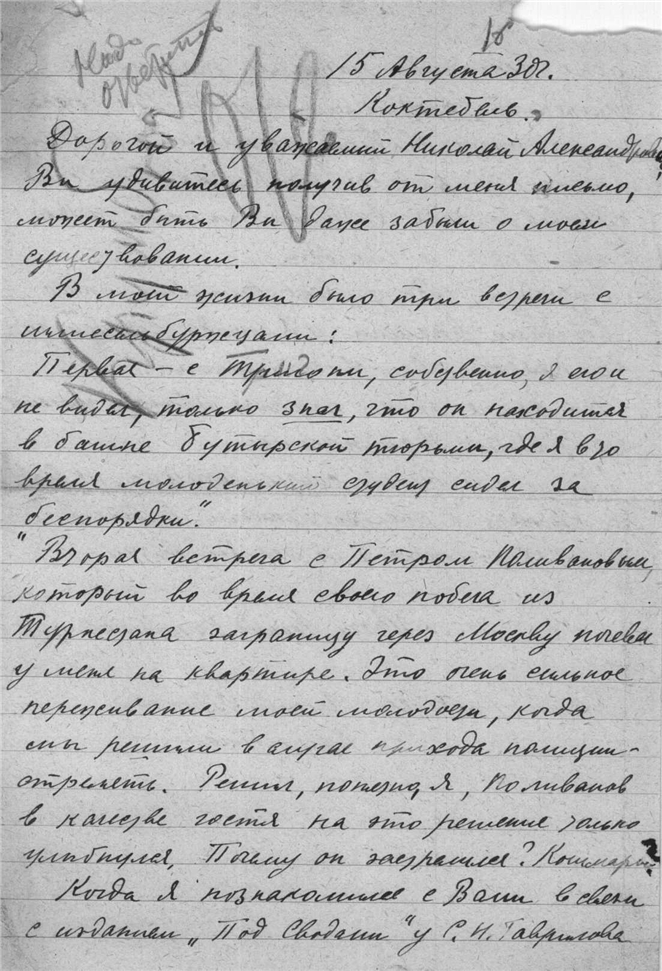 18
Надо
ответить
15 Августа 30г.
Коктебель.
Дорогой и уважаемый Николай Александрович!
Вы удивитесь получив от меня письмо,
может быть Вы даже забыли о моем
существовании.
В моей жизни было три встречи с
шлиссельбуржцами:
Первая – с Тригони, собственно, я его и
не видел, только знал, что он находится
в башне Бутырской тюрьмы, где я в то
время молоденький студент сидел за
"беспорядки".
Вторая встреча с Петром Поливановым,
который во время своего побега из
Туркестана заграницу через Москву ночевал
у меня на квартире. Это очень сильное
переживание моей молодости, когда
мы решили в случае прихода полиции –
стрелять. Решил, понятно, я, Поливанов
в качестве гостя на это решение только
улыбнулся. Почему он застрелился? Кошмары?
Когда я познакомился с Вами в связи
с изданием „Под Сводами" у С. И. Гаврилова